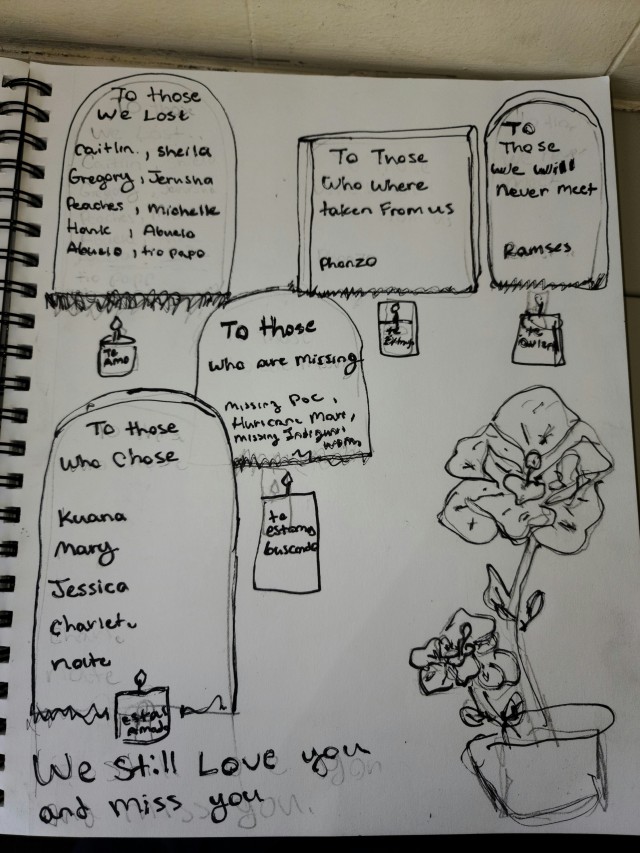 To those
We Lost
Caitlin., Sheila
Gregory, Jerusha
Peaches, Michelle
Hank, Abuelo
Abuelo, tio papo
To Those
Who Where
taken From us
Phonzo
To
Those
We Will
Never meet
Ramses
Te
Amo
te
To those
Who are missing
missing Poc,
Huricane Mari,
missing
te
estamo
buscando
To those
Who Chose
Kuana
Mary
Jessica
Charlet
nate
estas
amado
We Still Love you
and miss you